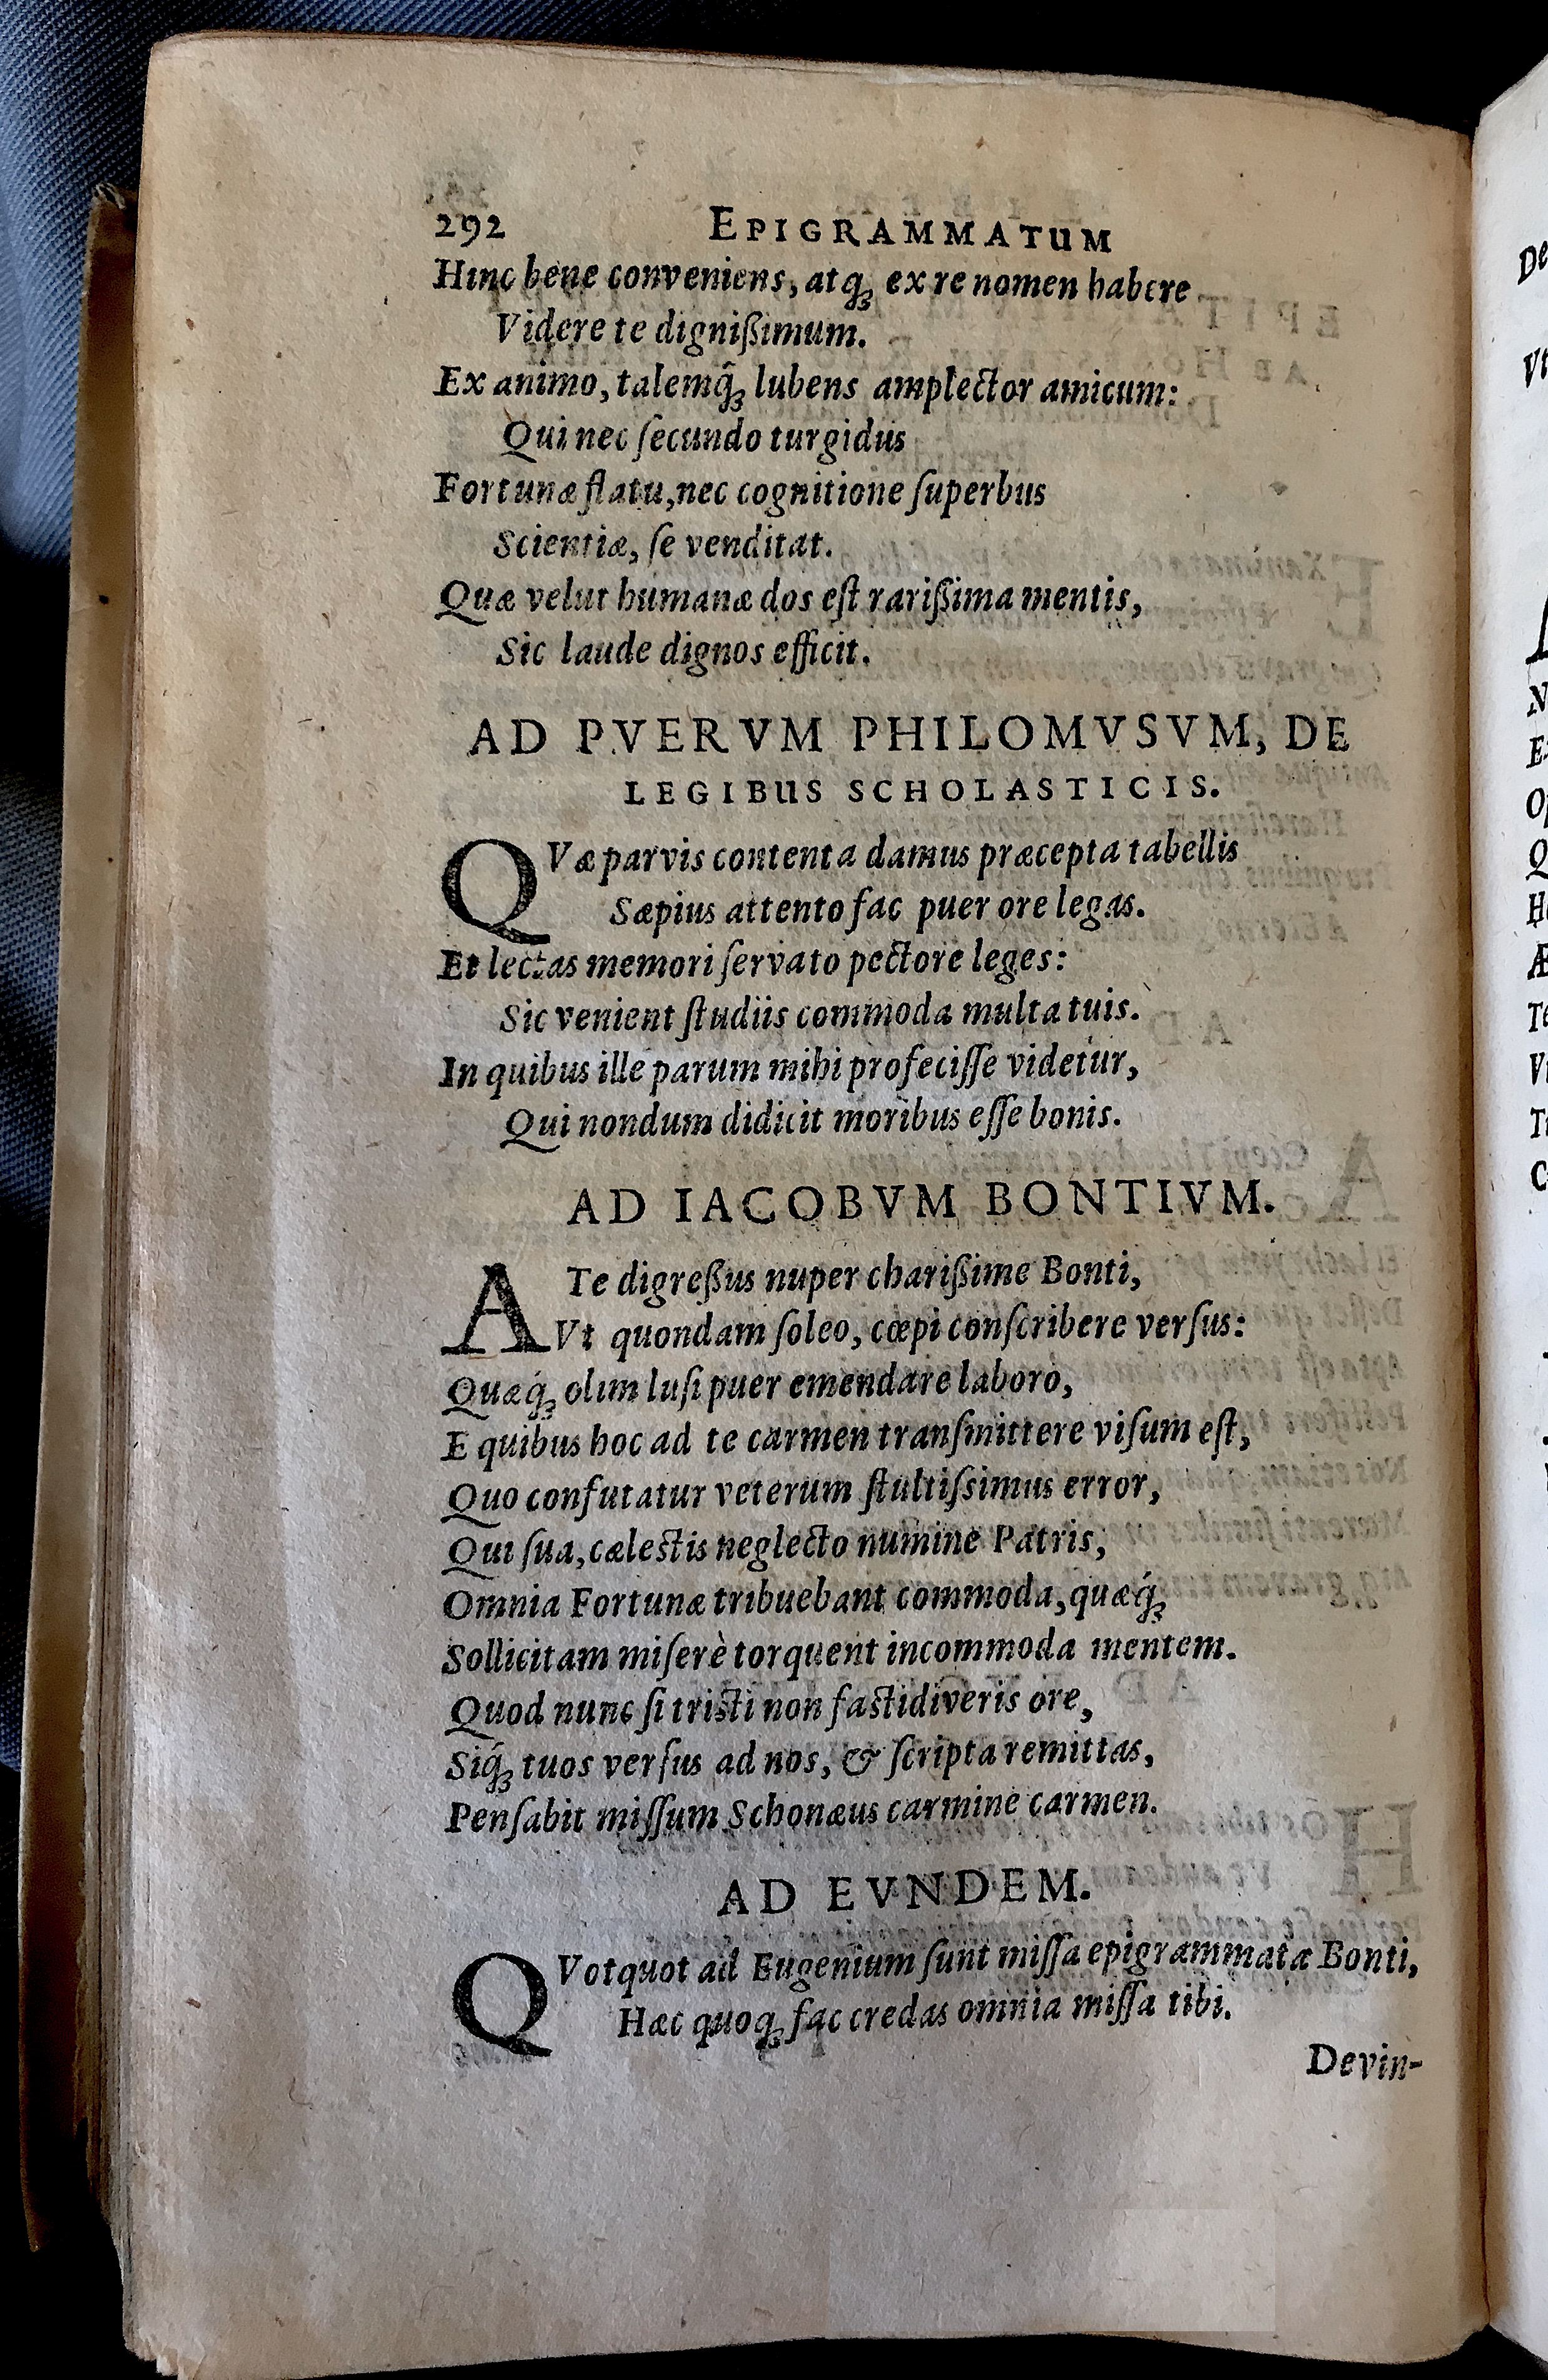 292 EPIGRAMMATUM
Hinc bene conveniens, atq́ꝫ ex re nomen habere
Videre te dignißimum.
Ex animo, talemq́ꝫ lubens amplector amicum:
Qui nec ſecundo turgidus
Fortunæ flatu, nec cognitione ſuperbus
Scientiæ, ſe venditat.
Quæ velut humanæ dos eſt rarißima mentis,
Sic laude dignos efficit.
AD PVERVM PHILOMVSVM, DE
LEGIBUS SCHOLASTICIS.
QVæ parvis contenta damus præcepta tabellis
Sæpius attento fac puer ore legas.
Et lectas memori ſervato pectore leges:
Sic venient ſtudiis commoda multa tuis.
In quibus ille parum mihi profeciſſe videtur,
Qui nondum didicit moribus eſſe bonis.
AD IACOBVM BONTIVM.
A Te digreßus nuper charißime Bonti,
Vt quondam ſoleo, cœpi conſcribere verſus:
Quæq́ꝫ olim luſi puer emendare laboro,
E quibus hoc ad te carmen tranſmittere viſum eſt,
Quo confutatur veterum ſtultiſsimus error,
Qui ſua, cælestis neglecto numine Patris,
Omnia Fortunæ tribuebant commoda, quæq́ꝫ
Sollicitam miſerè torquent incommoda mentem.
Quod nunc ſi tristi non fastidiveris ore,
Siq́ꝫ tuos verſus ad nos, & ſcripta remittas,
Penſabit miſſum Schonæus carmine carmen.
AD EVNDEM.
QVotquot ad Eugenium ſunt miſſa epigrammata Bonti,
Hæc quoqꝫ fac credas omnia miſſa tibi.
Devin-